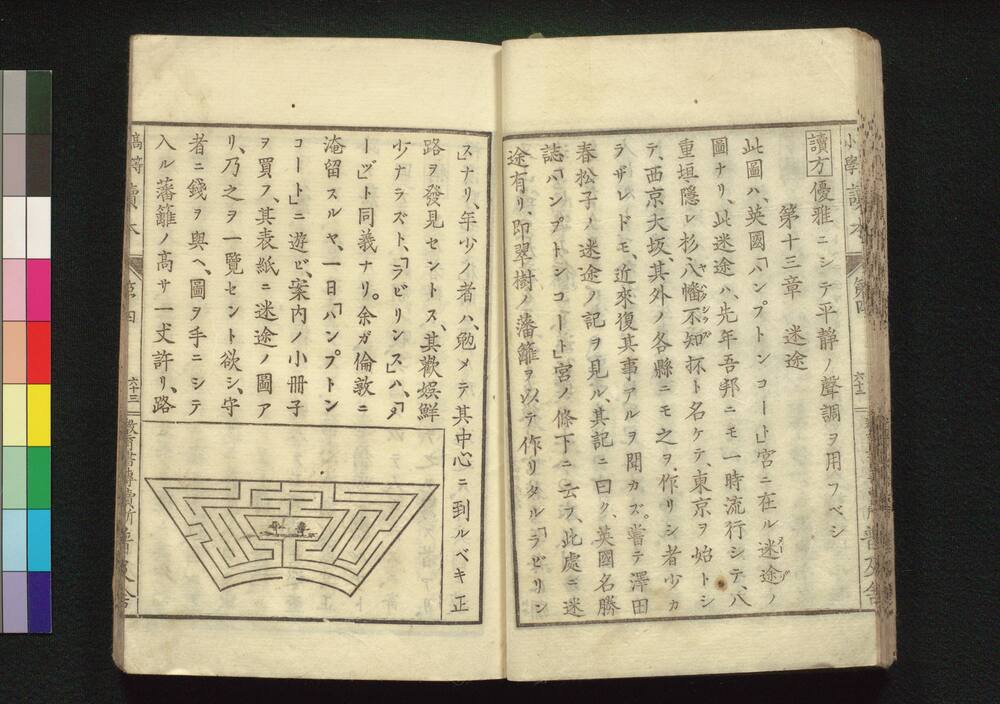 小學讀本
第四
六十二
讀方 優雅ニシテ平靜ノ聲調ヲ用フベシ
第十三章 迷途
此圖ハ、英國「ハンプトンコート」宮ニ在ル迷途ノ
圖ナリ、此迷途ハ、先年吾邦ニモ一時流行シテ、八
重垣隱レ杉、八幡不知抔ト名ケテ、東京ヲ始トシ
テ、西京大坂、其外ノ各縣ニモ之ヲ作リシ者少カ
ラザレドモ、近來復其事アルヲ聞カズ。嘗テ澤田
春松子ノ迷途ノ記ヲ見ル、其記ニ曰ク、英國名勝
誌「ハンプトンコート」宮ノ條下ニ云フ、此處ニ迷
途有リ、即翠樹ノ藩籬ヲ以テ作リタル「ラビリン
ス」ナリ、年少ノ者ハ、勉メテ其中心ニ到ルベキ正
路ヲ發見セントス、其歡娯鮮
少ナラズト、「ラビリンス」ハ、「メ
ーヅ」ト同義ナリ。余ガ倫敦ニ
淹留スルヤ、一日「ハンプトン
コート」ニ遊ビ、案内ノ小冊子
ヲ買フ、其表紙ニ迷途ノ圖ア
リ、乃之ヲ一覽セント欲シ、守
者ニ錢ヲ與ヘ、圖ヲ手ニシテ
入ル藩籬ノ高サ一丈許リ、路
高等讀本
第四
六十三